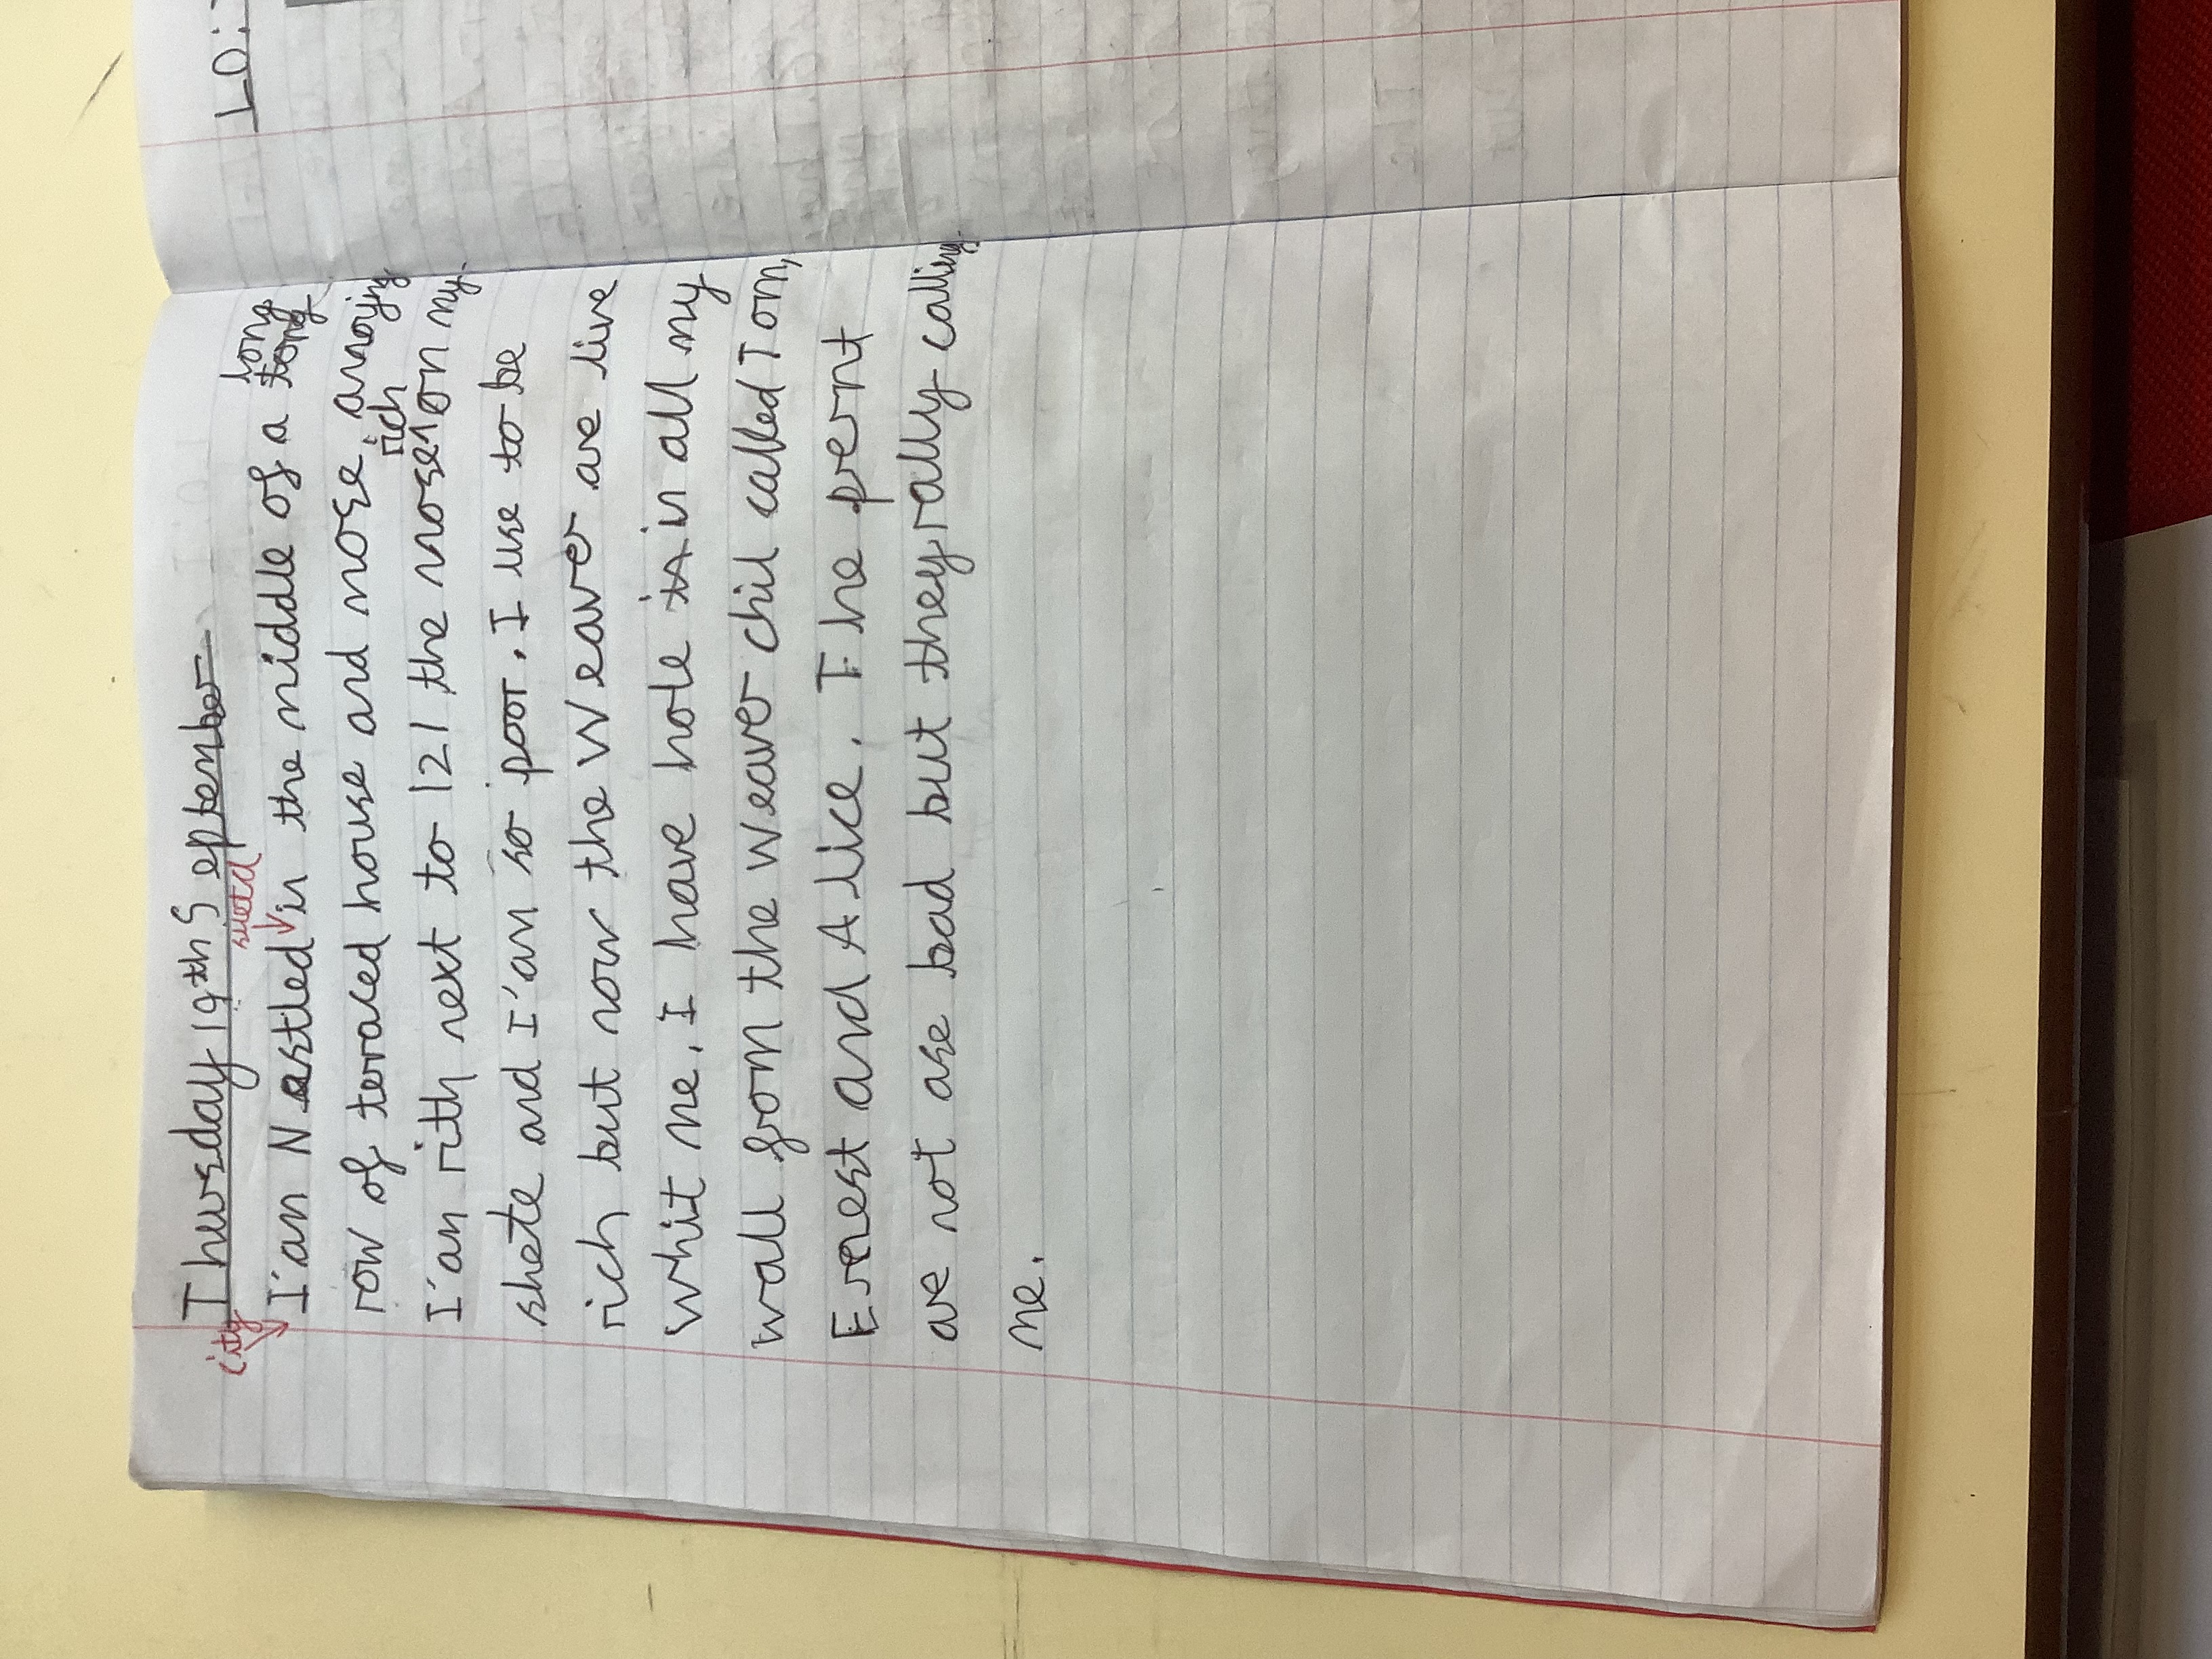 LO:
Thursday 19th September
city suetd long
I'am Nestled in the middle of a tong
row of teraced house and nose anoying
rich
I'am rith next to 121 the nose on my
shete and I'am so poor. I use to be
rich but now the Weaver are live
whit me. I have hole in in all my
wall from the weaver chil called Tom,
Erenest and Alice. The pernt
are not ase bad but they rally calling
me.